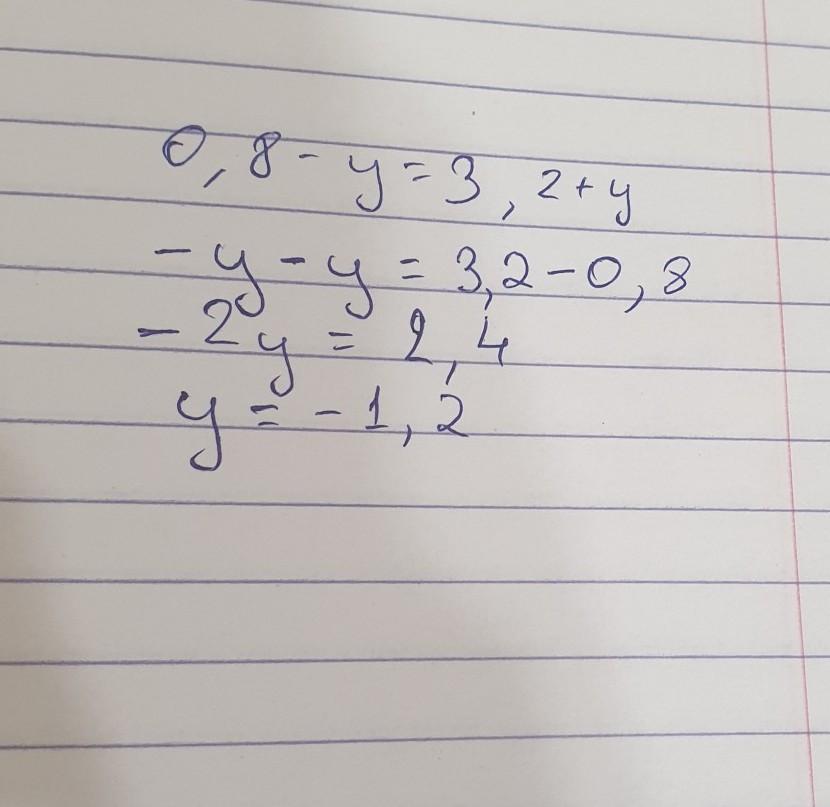 0,8 - y = 3,2 + y
- y - y = 3,2 - 0,8
- 2y = 2,4
y = - 1,2